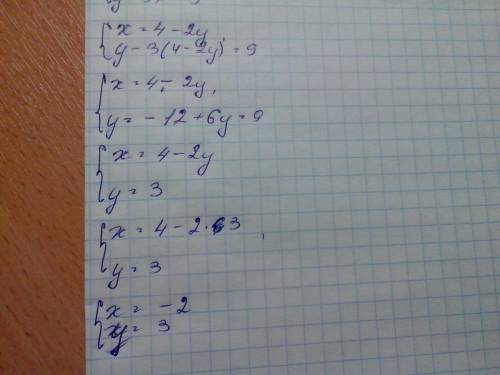 { x = 4 - 2y,
y - 3(4 - 2y) = 9
{ x = 4 - 2y,
y = - 12 + 6y = 9
{ x = 4 - 2y
y = 3
{ x = 4 - 2·3,
y = 3
{ x = - 2
y = 3